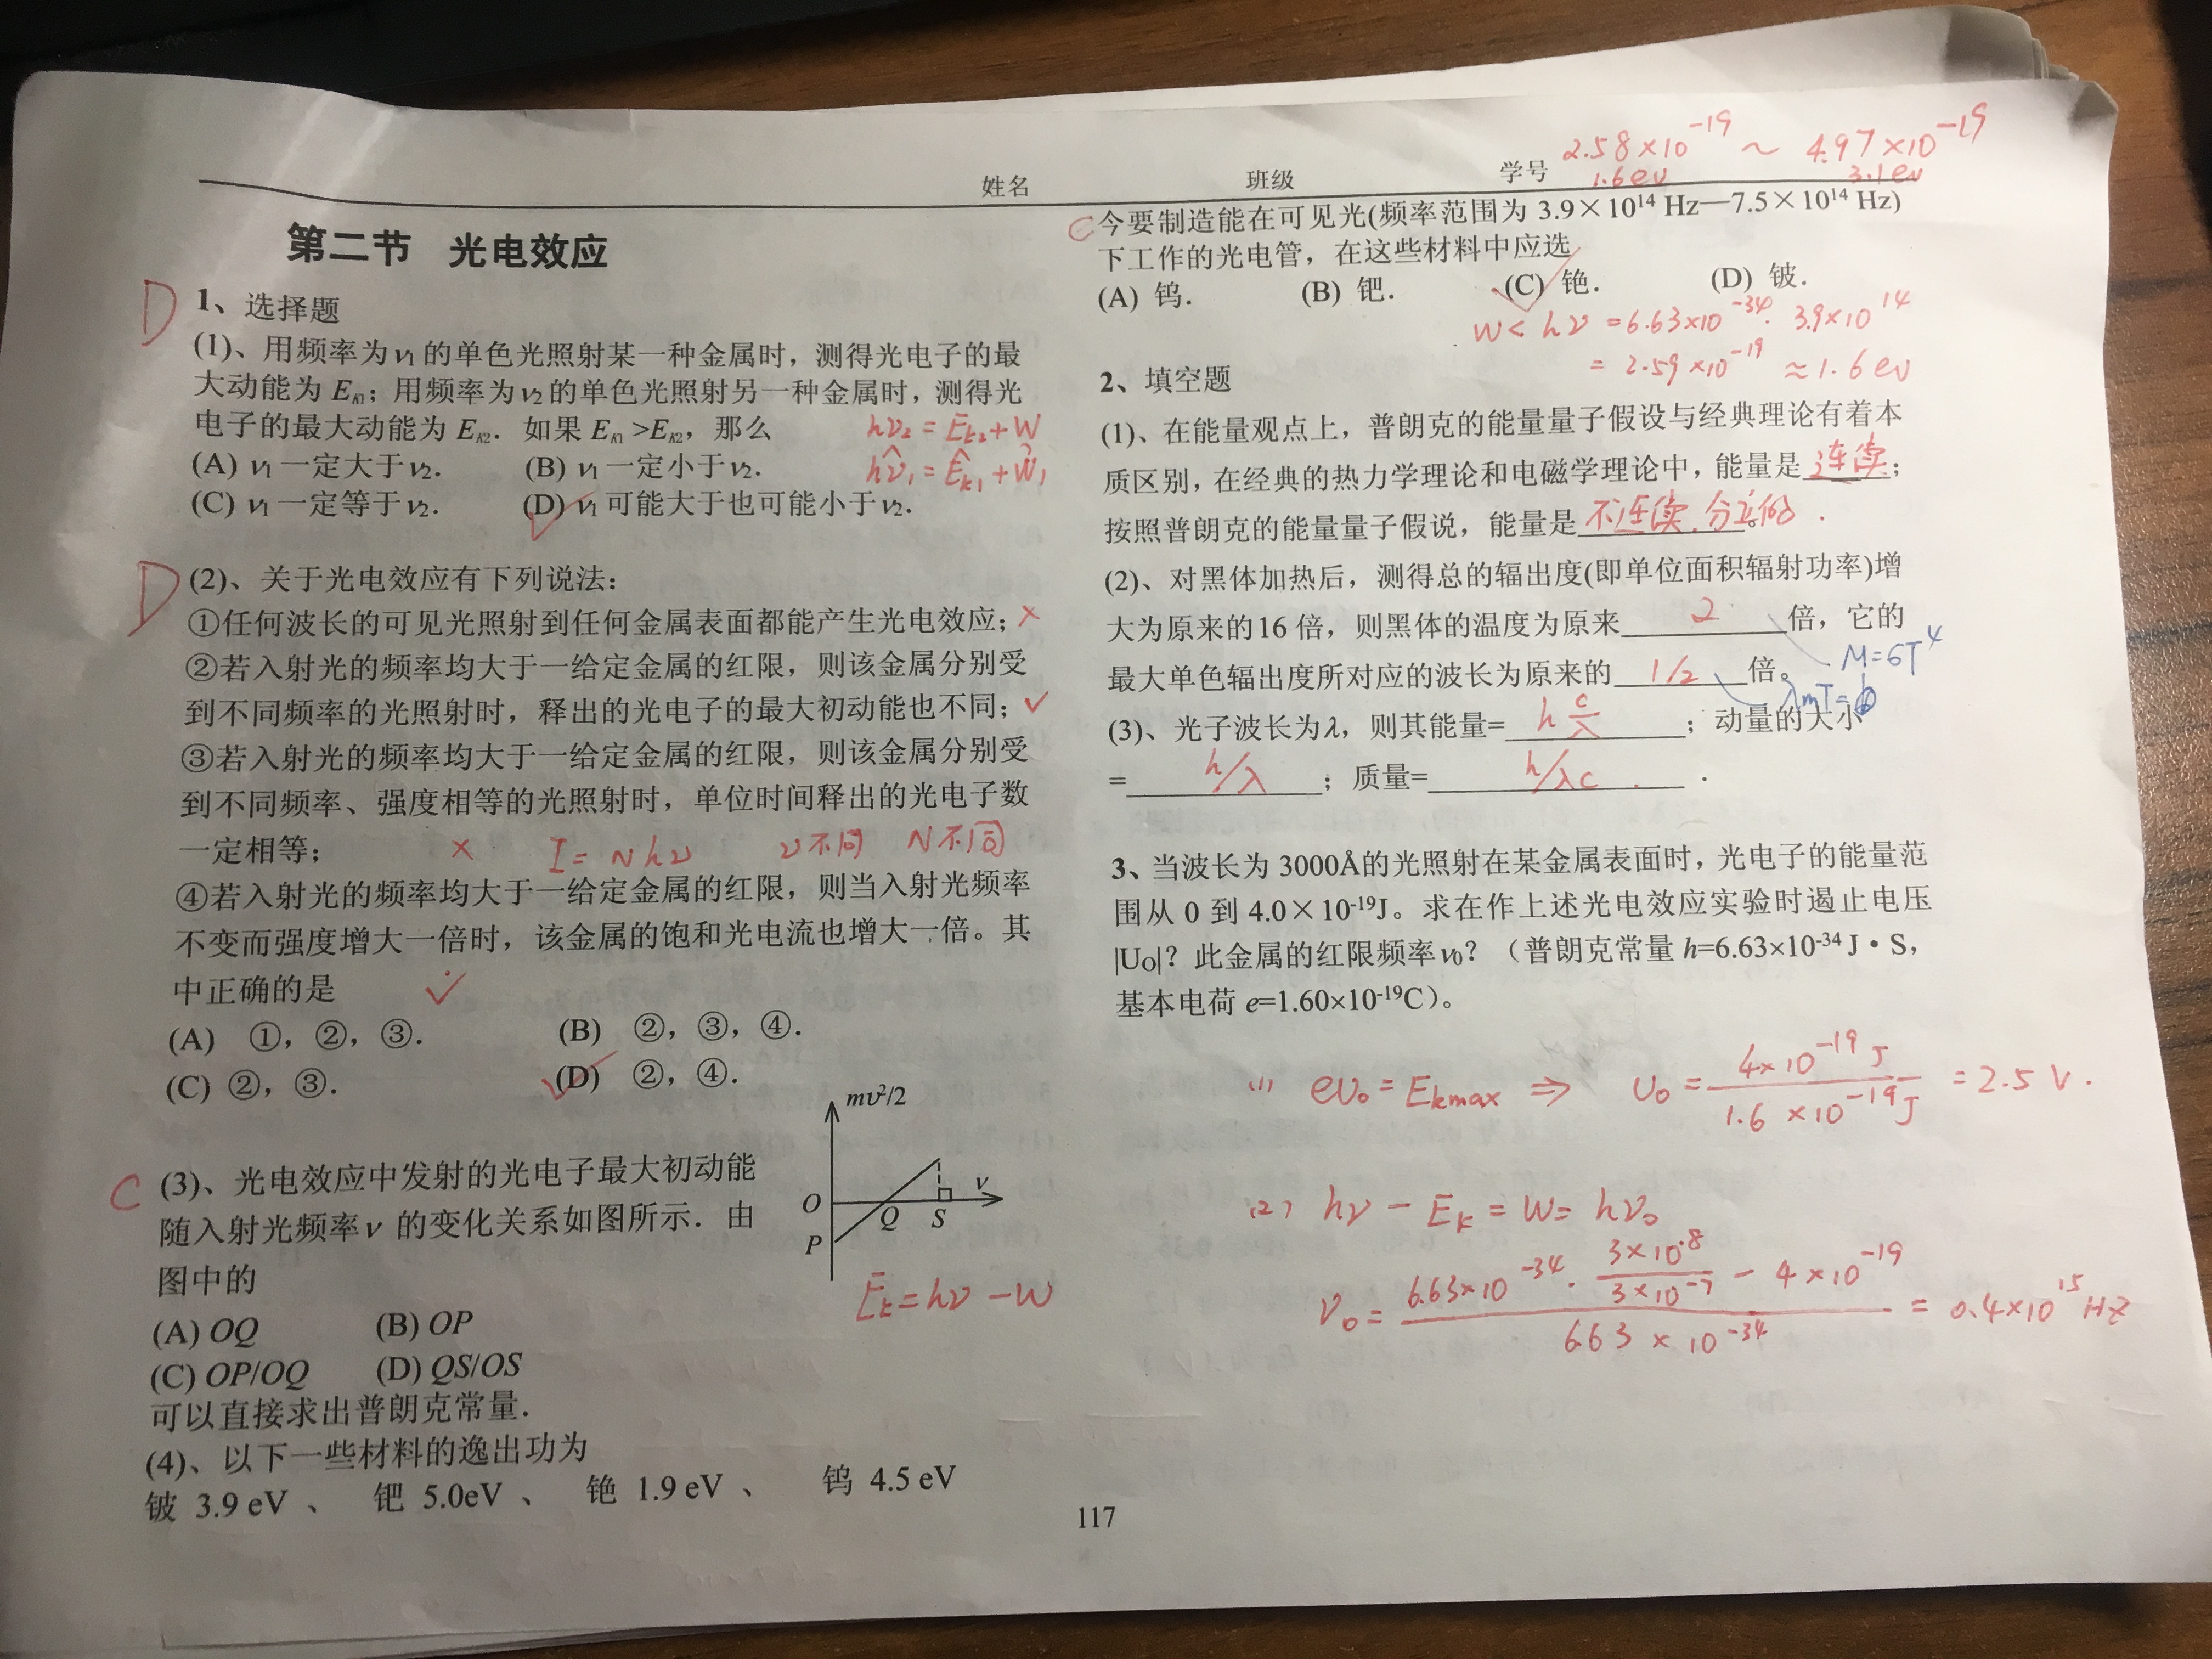 姓名 班级 学号
2.58×10⁻¹⁹ ~ 4.97×10⁻¹⁹
1.6ev 3.1ev
第二节 光电效应
D
1、选择题
(1)、用频率为ν₁的单色光照射某一种金属时，测得光电子的最
大动能为 E_K1；用频率为ν₂的单色光照射另一种金属时，测得光
电子的最大动能为 E_K2．如果 E_K1 >E_K2，那么
hν₂ = E_k2+W
hν₁ = E_k1+W₁
(A) ν₁一定大于ν₂． (B) ν₁一定小于ν₂．
(C) ν₁一定等于ν₂． (D) ν₁可能大于也可能小于ν₂．
D
(2)、关于光电效应有下列说法：
①任何波长的可见光照射到任何金属表面都能产生光电效应； ×
②若入射光的频率均大于一给定金属的红限，则该金属分别受
到不同频率的光照射时，释出的光电子的最大初动能也不同； ✓
③若入射光的频率均大于一给定金属的红限，则该金属分别受
到不同频率、强度相等的光照射时，单位时间释出的光电子数
一定相等； × I = Nhν ν不同 N不同
④若入射光的频率均大于一给定金属的红限，则当入射光频率
不变而强度增大一倍时，该金属的饱和光电流也增大一倍。其
中正确的是 ✓
(A) ①，②，③． (B) ②，③，④．
(C) ②，③． (D) ②，④．
C
(3)、光电效应中发射的光电子最大初动能
随入射光频率ν 的变化关系如图所示．由
图中的
(A) OQ (B) OP
(C) OP/OQ (D) QS/OS
可以直接求出普朗克常量．
mυ²/2
O Q S ν
P
E_k=hν-W
(4)、以下一些材料的逸出功为
铍 3.9 eV 、 钯 5.0eV 、 铯 1.9 eV 、 钨 4.5 eV
C
今要制造能在可见光(频率范围为 3.9×10¹⁴ Hz—7.5×10¹⁴ Hz)
下工作的光电管，在这些材料中应选
(A) 钨． (B) 钯． (C) 铯． (D) 铍．
W< hν =6.63×10⁻³⁴· 3.9×10¹⁴
= 2.59×10⁻¹⁹ ≈1.6ev
2、填空题
(1)、在能量观点上，普朗克的能量量子假设与经典理论有着本
质区别，在经典的热力学理论和电磁学理论中，能量是连续；
按照普朗克的能量量子假说，能量是不连续、分立的。
(2)、对黑体加热后，测得总的辐出度(即单位面积辐射功率)增
大为原来的16 倍，则黑体的温度为原来 2 倍，它的
最大单色辐出度所对应的波长为原来的 1/2 倍。
M=σT⁴
λmT=b
(3)、光子波长为λ，则其能量= h c/λ ；动量的大小
= h/λ ；质量= h/λc ．
3、当波长为 3000Å的光照射在某金属表面时，光电子的能量范
围从 0 到 4.0×10⁻¹⁹J。求在作上述光电效应实验时遏止电压
|U₀|？此金属的红限频率ν₀？（普朗克常量 h=6.63×10⁻³⁴ J·S，
基本电荷 e=1.60×10⁻¹⁹C）。
(1) eU₀=E_kmax ⇒ U₀ = 4×10⁻¹⁹J / 1.6×10⁻¹⁹J = 2.5 V.
(2) hν - E_k = W= hν₀
ν₀ = (6.63×10⁻³⁴· 3×10⁸/3×10⁻⁷ - 4×10⁻¹⁹) / 6.63×10⁻³⁴ = 0.4×10¹⁵Hz
117